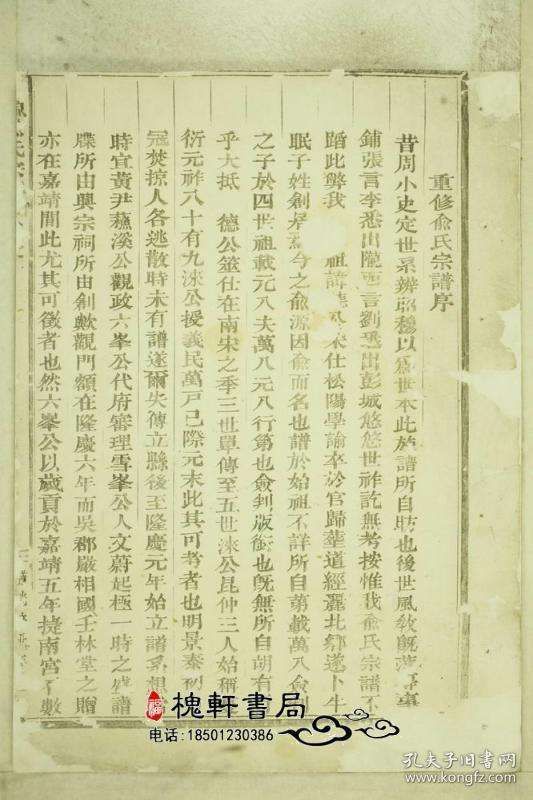 重修俞氏宗譜序
昔周小史定世系辨昭穆以為世本此族譜所自昉也後世風敎旣
鋪張言李悉出隴西言劉悉出彭城悠悠世祚訖無考按惟我俞氏宗譜不
蹈此弊我 祖諱 仕松陽學諭卒於官歸葬道經麗北鄉遂卜牛
眠子姓剏居 今之俞源因俞而名也譜於始祖不詳所自第載萬八僉判
之子於四世祖載元八夫萬八元八行第也僉判版銜也旣無所自胡有
乎大抵 德公筮仕在南宋之季三世單傳至五世淶公昆仲三人始稱
衍元祚八十有九淶公授義民萬戸已際元末此其可考者也明景泰
冠焚掠人各逃散時未有譜遂爾失傳立縣後至隆慶元年始立譜系想
時宜黃尹蘓溪公觀政六峯公代府審理雪峯公人文蔚起極一時之盛譜
牒所由興宗祠所由剏歟觀門額在隆慶六年而吳郡嚴相國壬林堂之贈
亦在嘉靖間此尤其可徵者也然六峯公以歲貢於嘉靖五年捷南宮 數
槐軒書局
电话:18501230386
孔夫子旧书网
www.kongfz.com